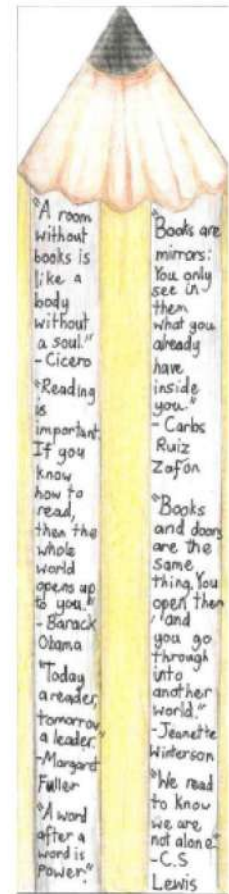 "A room
without
books is
like a
body
without
a soul."
- Cicero
"Reading
is
important.
If you
know
how to
read,
then the
whole
world
opens up
to you."
- Barack
Obama
"Today
a reader,
tomorrow
a leader."
-Margaret
Fuller
"A word
after a
word is
Power."
"Books are
mirrors:
You only
see in
them
what you
already
have
inside
you."
- Carlos
Ruiz
Zafón
"Books
and doors
are the
same
thing. You
open them
, and
you go
through
into
another
world."
-Jeanette
Winterson
"We read
to know
we are
not alone."
-C.S
Lewis